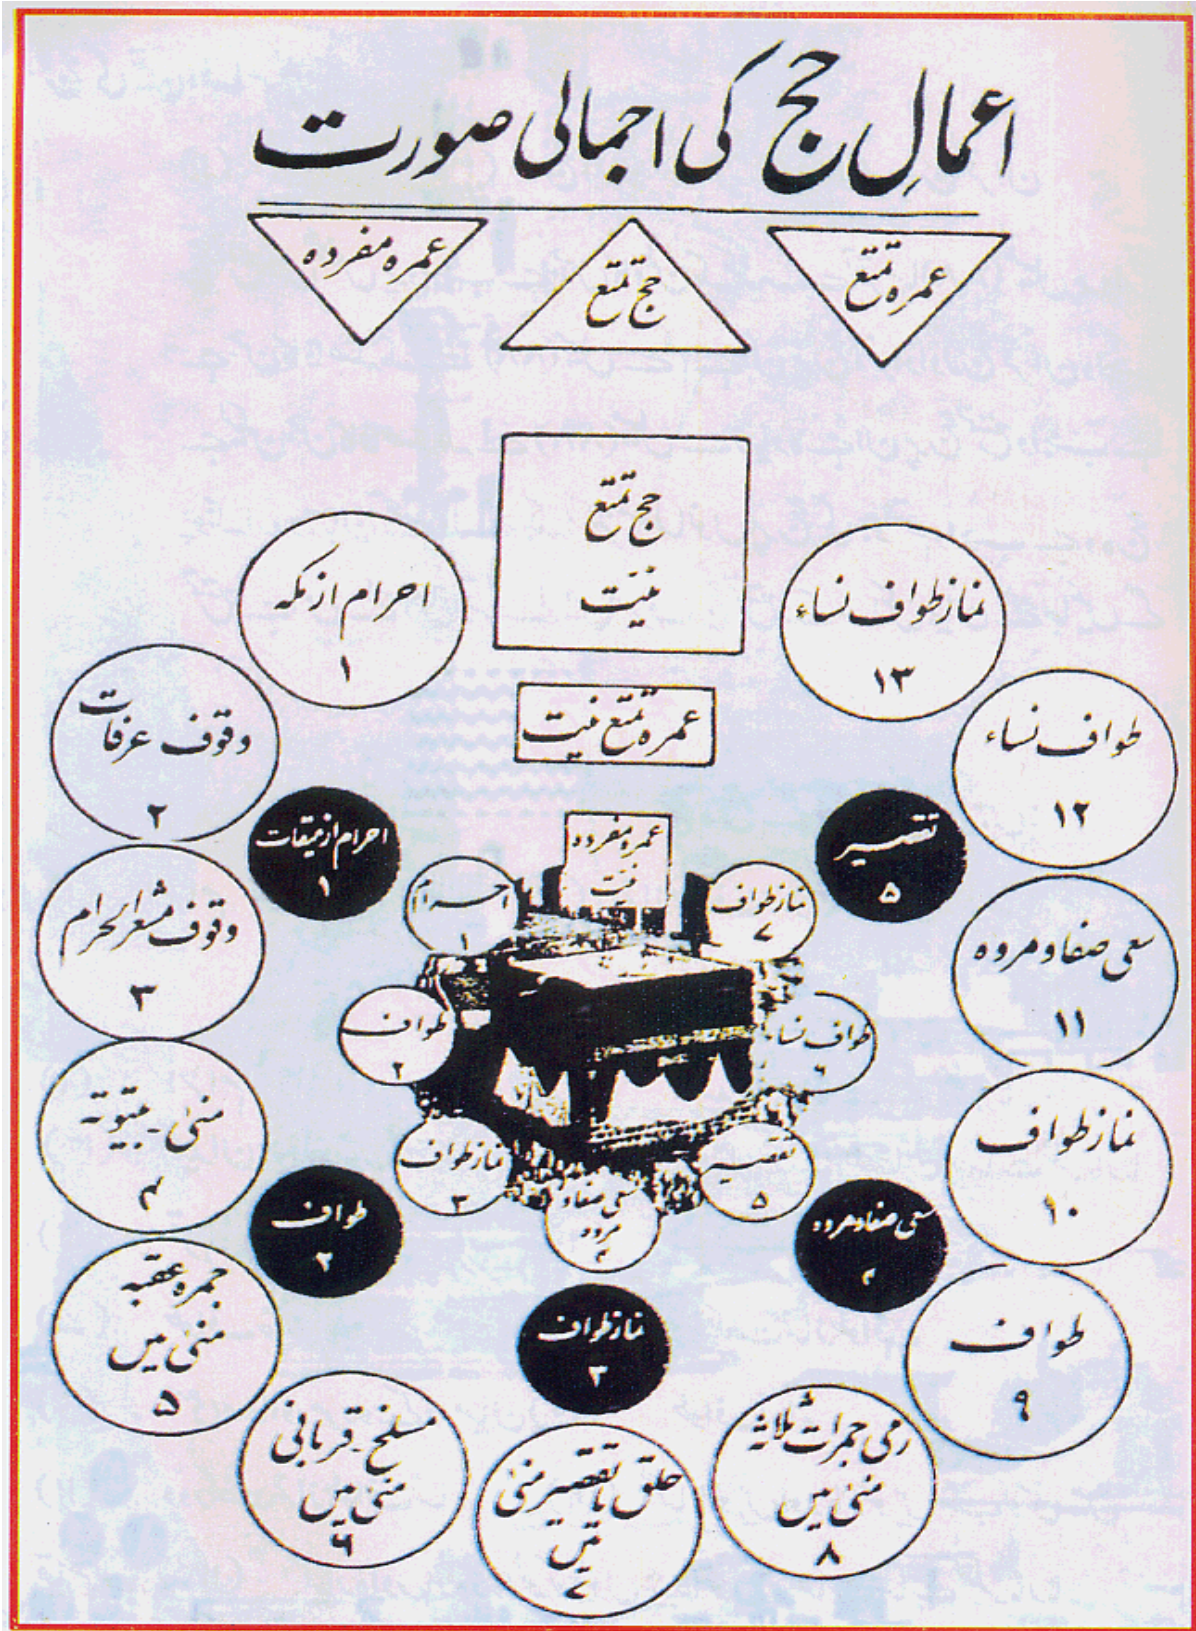 اعمالِ حج کی اجمالی صورت
عمرہ تمتع
حج تمتع
عمرہ مفردہ
حج تمتع
نیت
احرام از مکہ
۱
وقوف عرفات
۲
وقوف مشعر الحرام
۳
منیٰ - بیتوتہ
۴
جمرہ عقبہ
منیٰ میں
۵
مسلخ - قربانی
منیٰ میں
۶
حلق یا تقصیر منیٰ
میں
۷
رمی جمرات ثلاثہ
منیٰ میں
۸
طواف
۹
نماز طواف
۱۰
سعی صفا و مروہ
۱۱
طواف نساء
۱۲
نماز طواف نساء
۱۳
عمرہ تمتع نیت
احرام از میقات
۱
طواف
۲
نماز طواف
۳
سعی صفا و مروہ
۴
تقصیر
۵
عمرہ مفردہ
نیت
احرام
۱
طواف
۲
نماز طواف
۳
سعی صفا و
مروہ
۴
تقصیر
۵
طواف نساء
۶
نماز طواف
۷